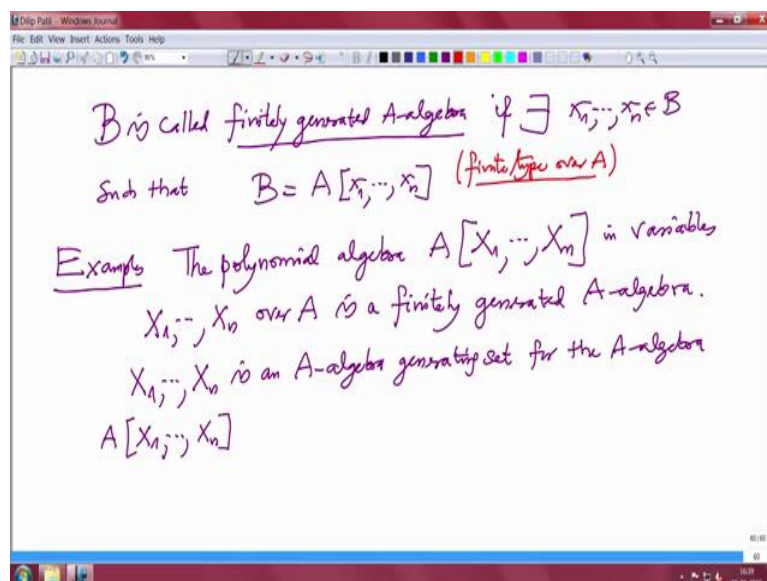 Dilip Patil - Windows Journal
File Edit View Insert Actions Tools Help
B is called finitely generated A-algebra if ∃ x₁,⋯,xₙ ∈ B
Such that B = A[x₁,⋯,xₙ] (finite type over A)
Examples The polynomial algebra A[X₁,⋯,Xₙ] in variables
X₁,⋯,Xₙ over A is a finitely generated A-algebra.
X₁,⋯,Xₙ is an A-algebra generating set for the A-algebra
A[X₁,⋯,Xₙ]
60/60
60
16:39